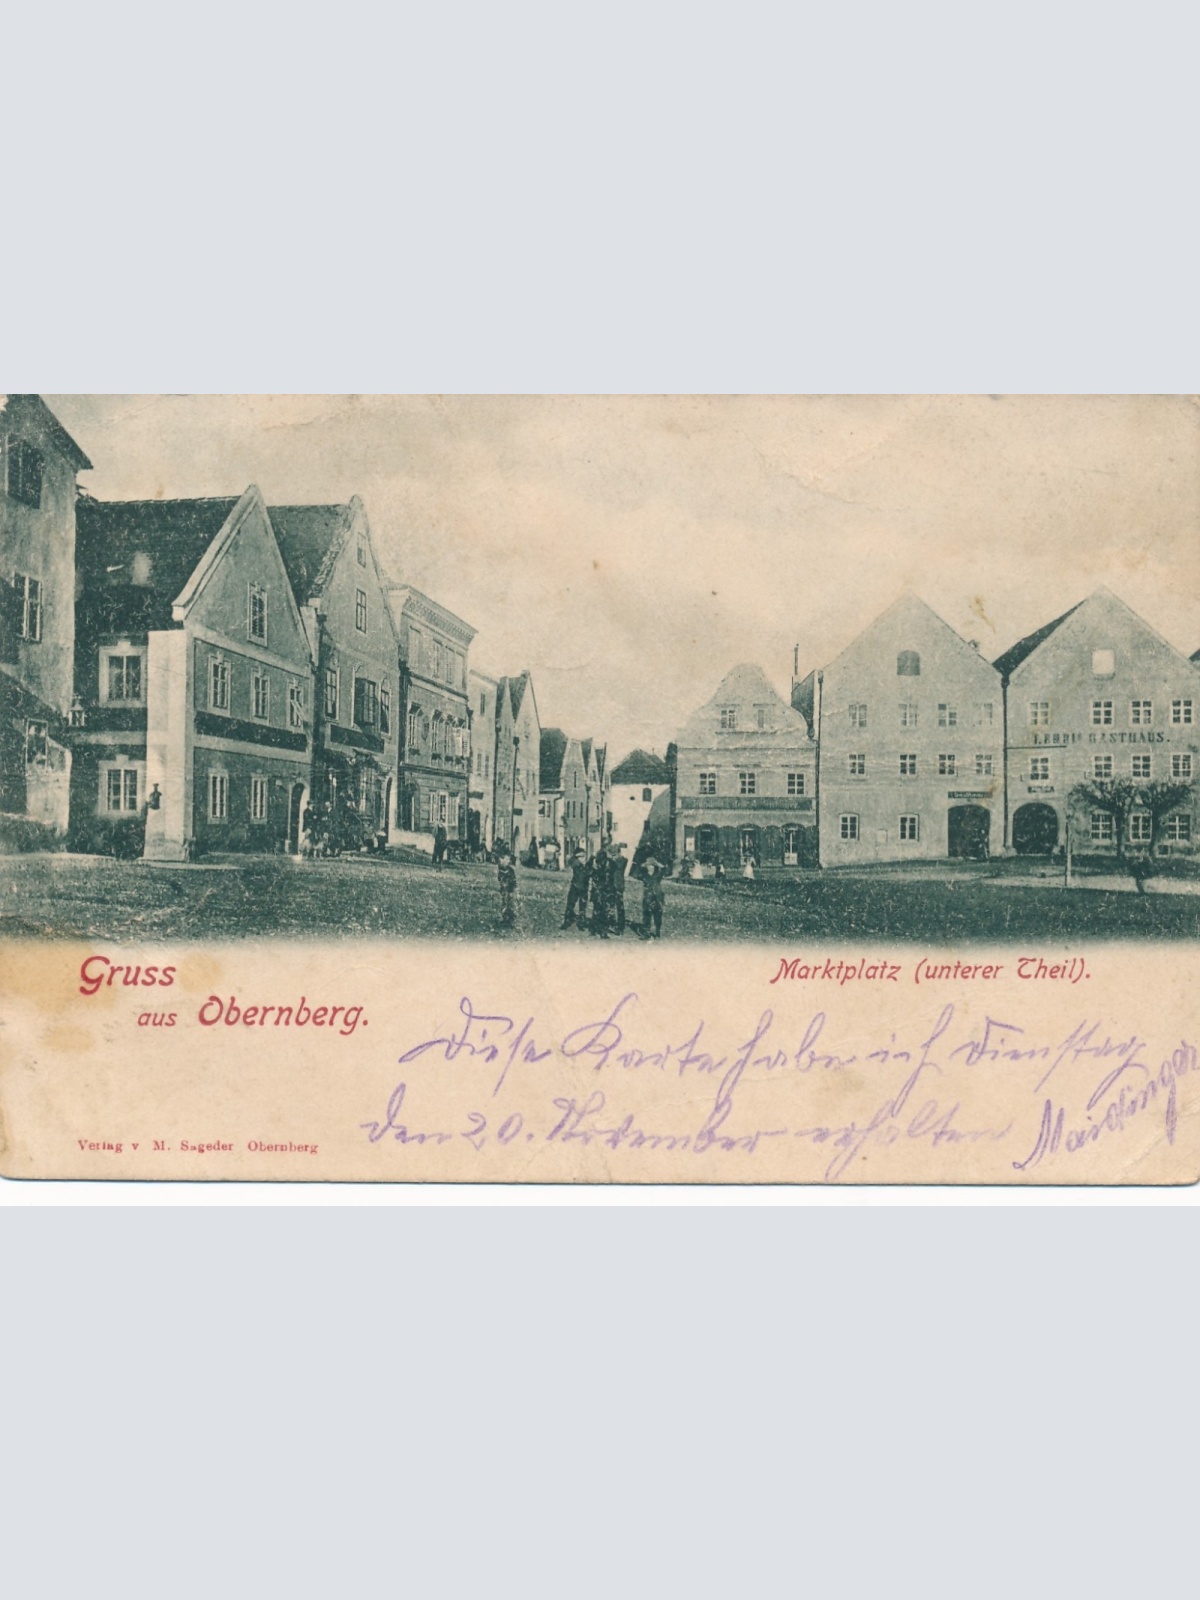 GASTHAUS.
Gruss
aus Obernberg.
Marktplatz (unterer Theil).
Diese Karte habe ich Dienstag
den 20. November erhalten
Maidinger
Verlag v M. Sageder Obernberg